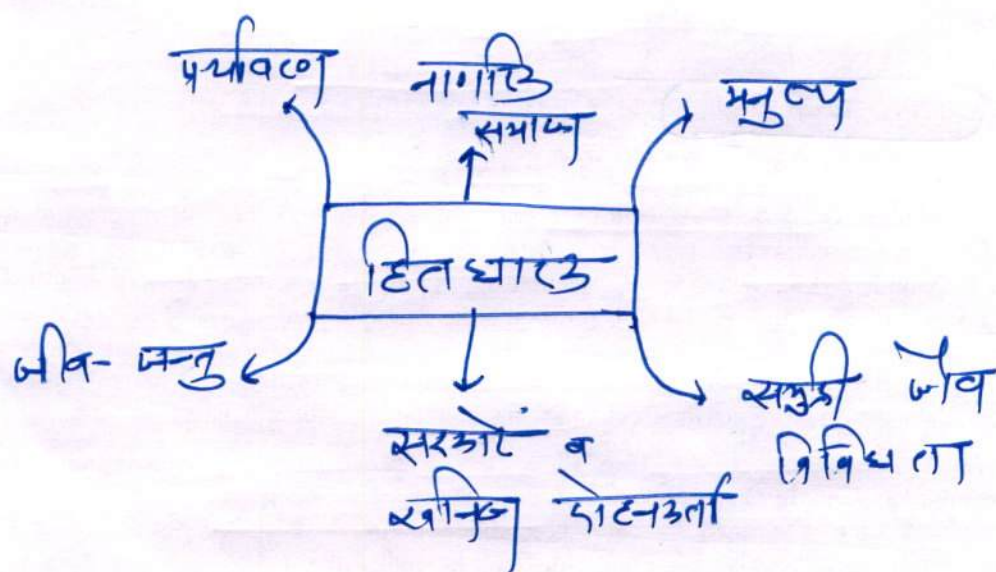 पर्यावरण
नागरिक
समाज
मनुष्य
हितधारक
जीव-जन्तु
सरकारें व
खनिज दोहनकर्ता
समुद्री जैव
विविधता